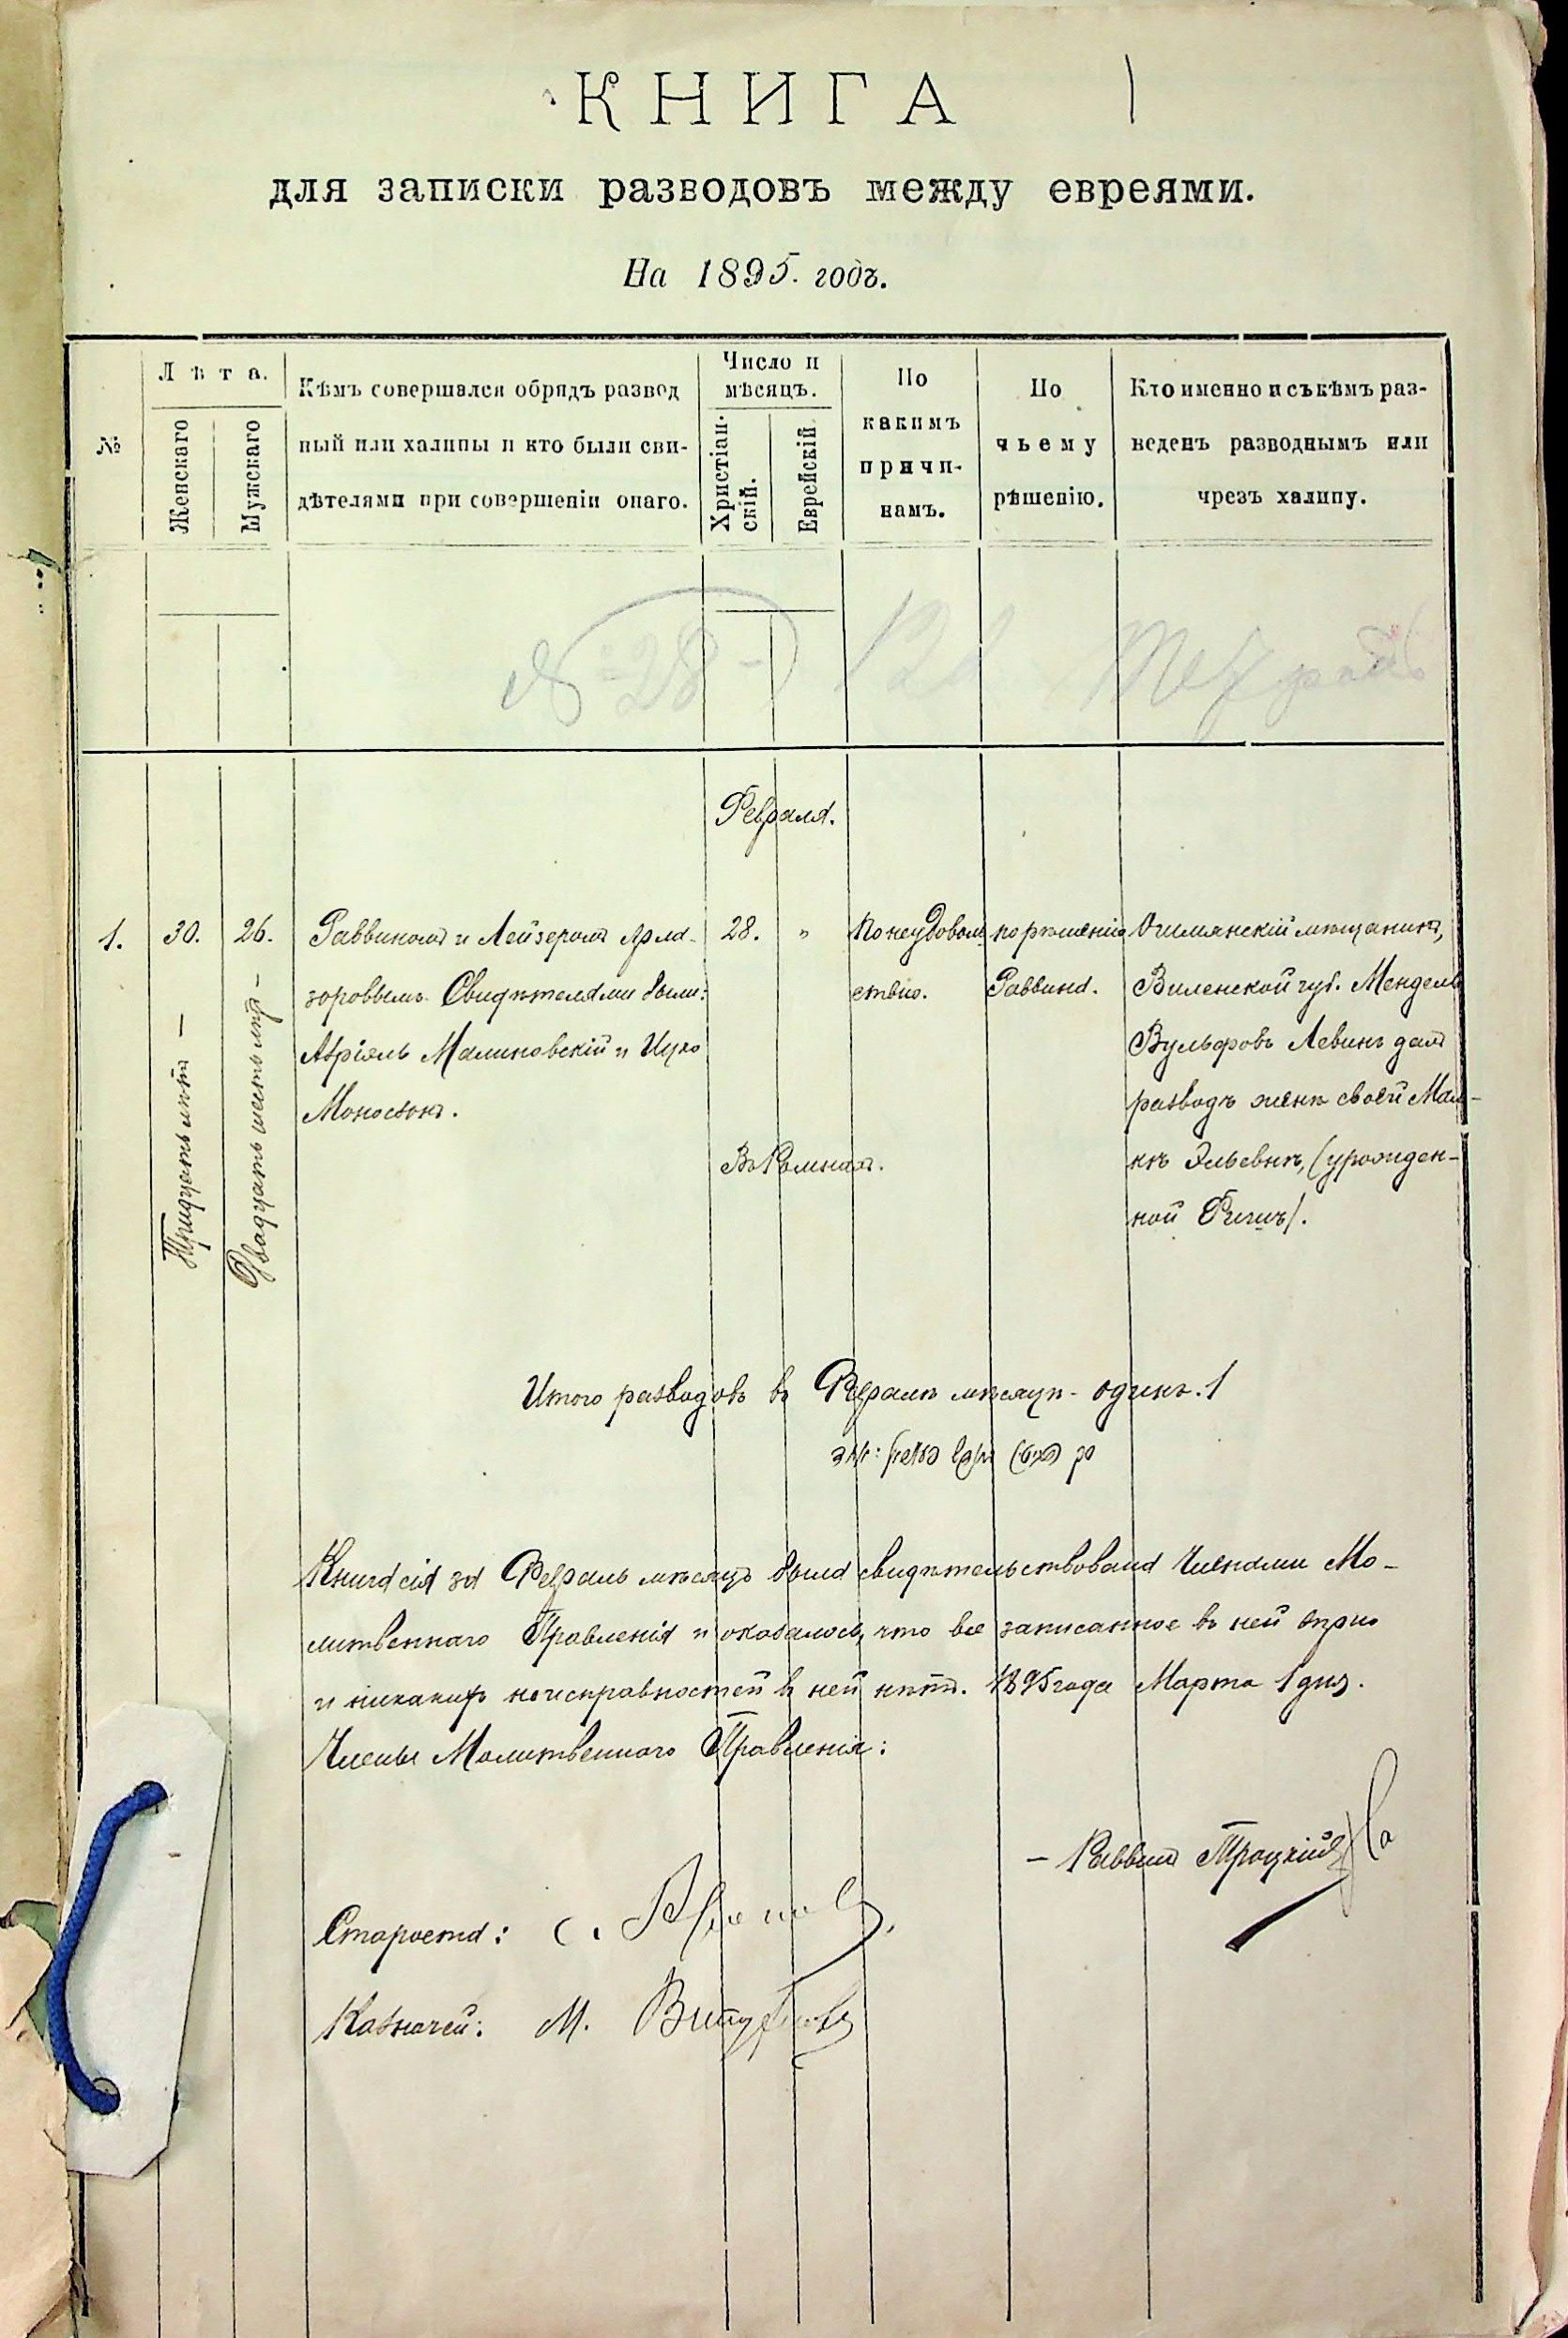 КНИГА
для записки разводовъ между евреями.
На 1895. годъ.
№
Лѣта.
Женскаго
Мужскаго
Кѣмъ совершался обрядъ развод
ный или халицы и кто были сви-
дѣтелями при совершеніи онаго.
Число и
мѣсяцъ.
Христіан-
скій.
Еврейскій
По
какимъ
причи-
намъ.
По
чьему
рѣшенію.
Кто именно и съ кѣмъ раз-
веденъ разводнымъ или
чрезъ халицу.
№ 28
Февраля.
1.
30.
Тридцать лѣтъ —
26.
Двадцать шесть лѣтъ —
Раввиномъ и Лейзеромъ
Свидѣтелями были:
Абріэль Малиновскій и Ицко
28.
"
В Ромнахъ.
По неудоволь
ствію.
по рѣшенію
Раввина.
Ошмянскій мѣщанинъ,
Виленской губ. Мендель
Вульфовъ Левинъ далъ
разводъ женѣ своей Мал-
кѣ Эльевнѣ, (урожден-
ной
Итого разводовъ въ Февралѣ мѣсяцѣ - одинъ. 1
Книга сія за Февраль мѣсяцъ была свидѣтельствована Членами Мо-
литвеннаго Правленія и оказалось, что все записанное въ ней вѣрно
и никакихъ неисправностей въ ней нѣтъ. 1895 года Марта 1 дня.
Члены Молитвеннаго Правленія:
— Раввинъ Троцкій
Староста: С.
Казначей: М.